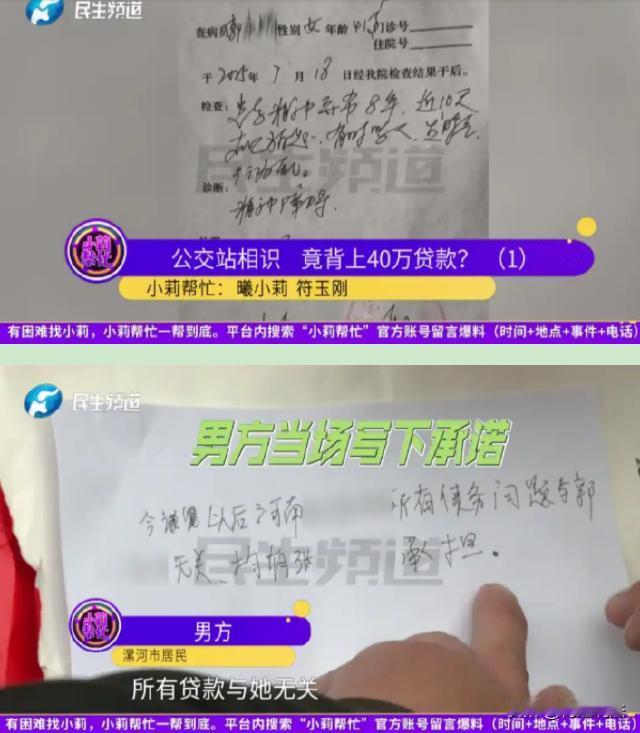 民生频道
查病员郭 性别女年龄41 门诊号
住院号
于2025年7月18日经我院检查结果于后。
检查：患者精神异常8年，近10天
诊断：
精神障碍。
民生频道
小莉帮忙
公交站相识 竟背上40万贷款？（1）
小莉帮忙：曦小莉 符玉刚
有困难找小莉，小莉帮忙一帮到底。平台内搜索“小莉帮忙”官方账号留言爆料（时间+地点+事件+电话）
民生频道
男方当场写下承诺
以后河南 所有债务问题与郭
无关，均由张 承担。
民生频道
小莉帮忙
男方
漯河市居民
所有贷款与她无关
有困难找小莉，小莉帮忙一帮到底。平台内搜索“小莉帮忙”官方账号留言爆料（时间+地点+事件+电话）